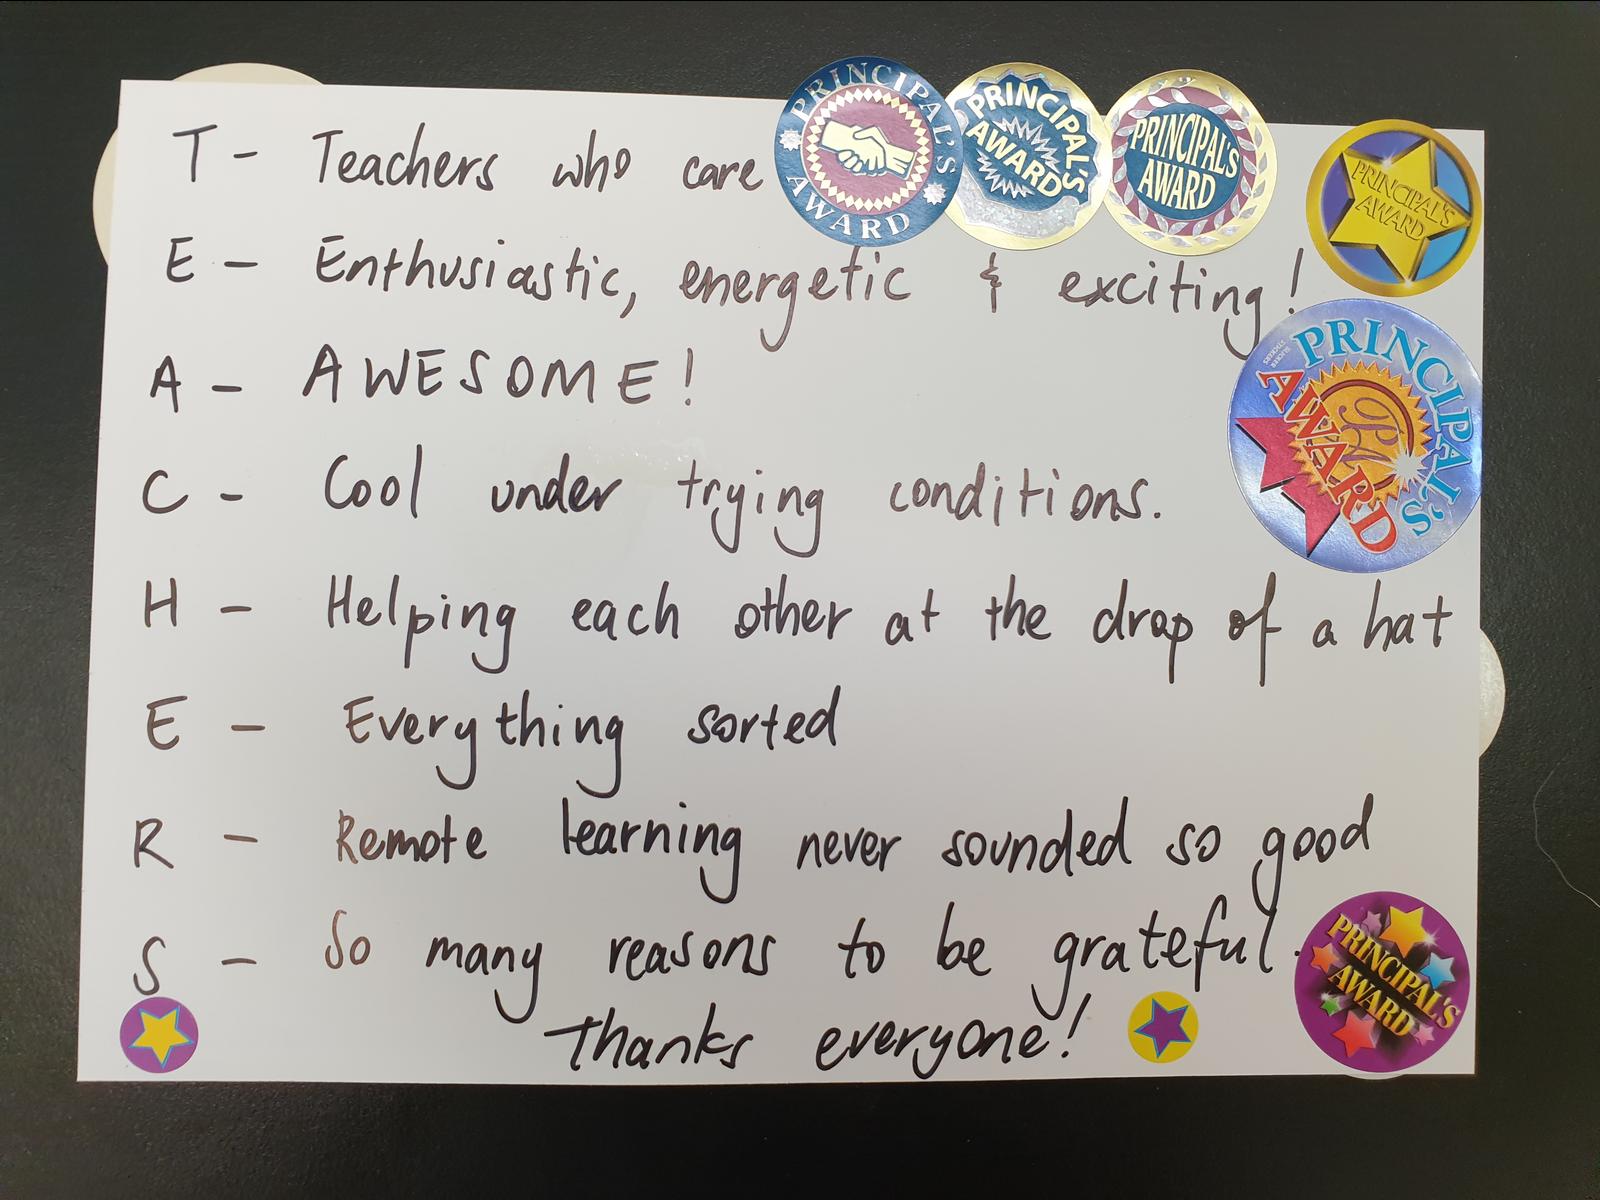 T - Teachers who care
PRINCIPAL'S AWARD
PRINCIPAL'S AWARD
PRINCIPAL'S AWARD
PRINCIPAL'S AWARD
E - Enthusiastic, energetic & exciting!
A - AWESOME!
PRINCIPAL'S AWARD
C - Cool under trying conditions.
H - Helping each other at the drop of a hat
E - Everything sorted
R - Remote learning never sounded so good
S - So many reasons to be grateful.
PRINCIPAL'S AWARD
Thanks everyone!